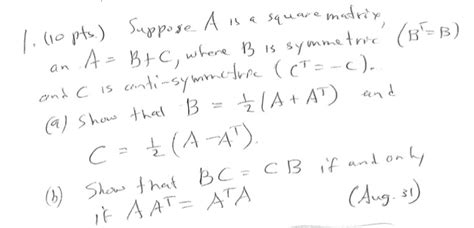 1. (10 pts.) Suppose A is a square matrix,
an A = B+C, where B is symmetric (B^T = B)
and C is anti-symmetric (C^T = -C).
(a) Show that B = 1/2 (A + A^T) and
C = 1/2 (A - A^T).
(b) Show that BC = CB if and only
if A A^T = A^T A (Aug. 31)